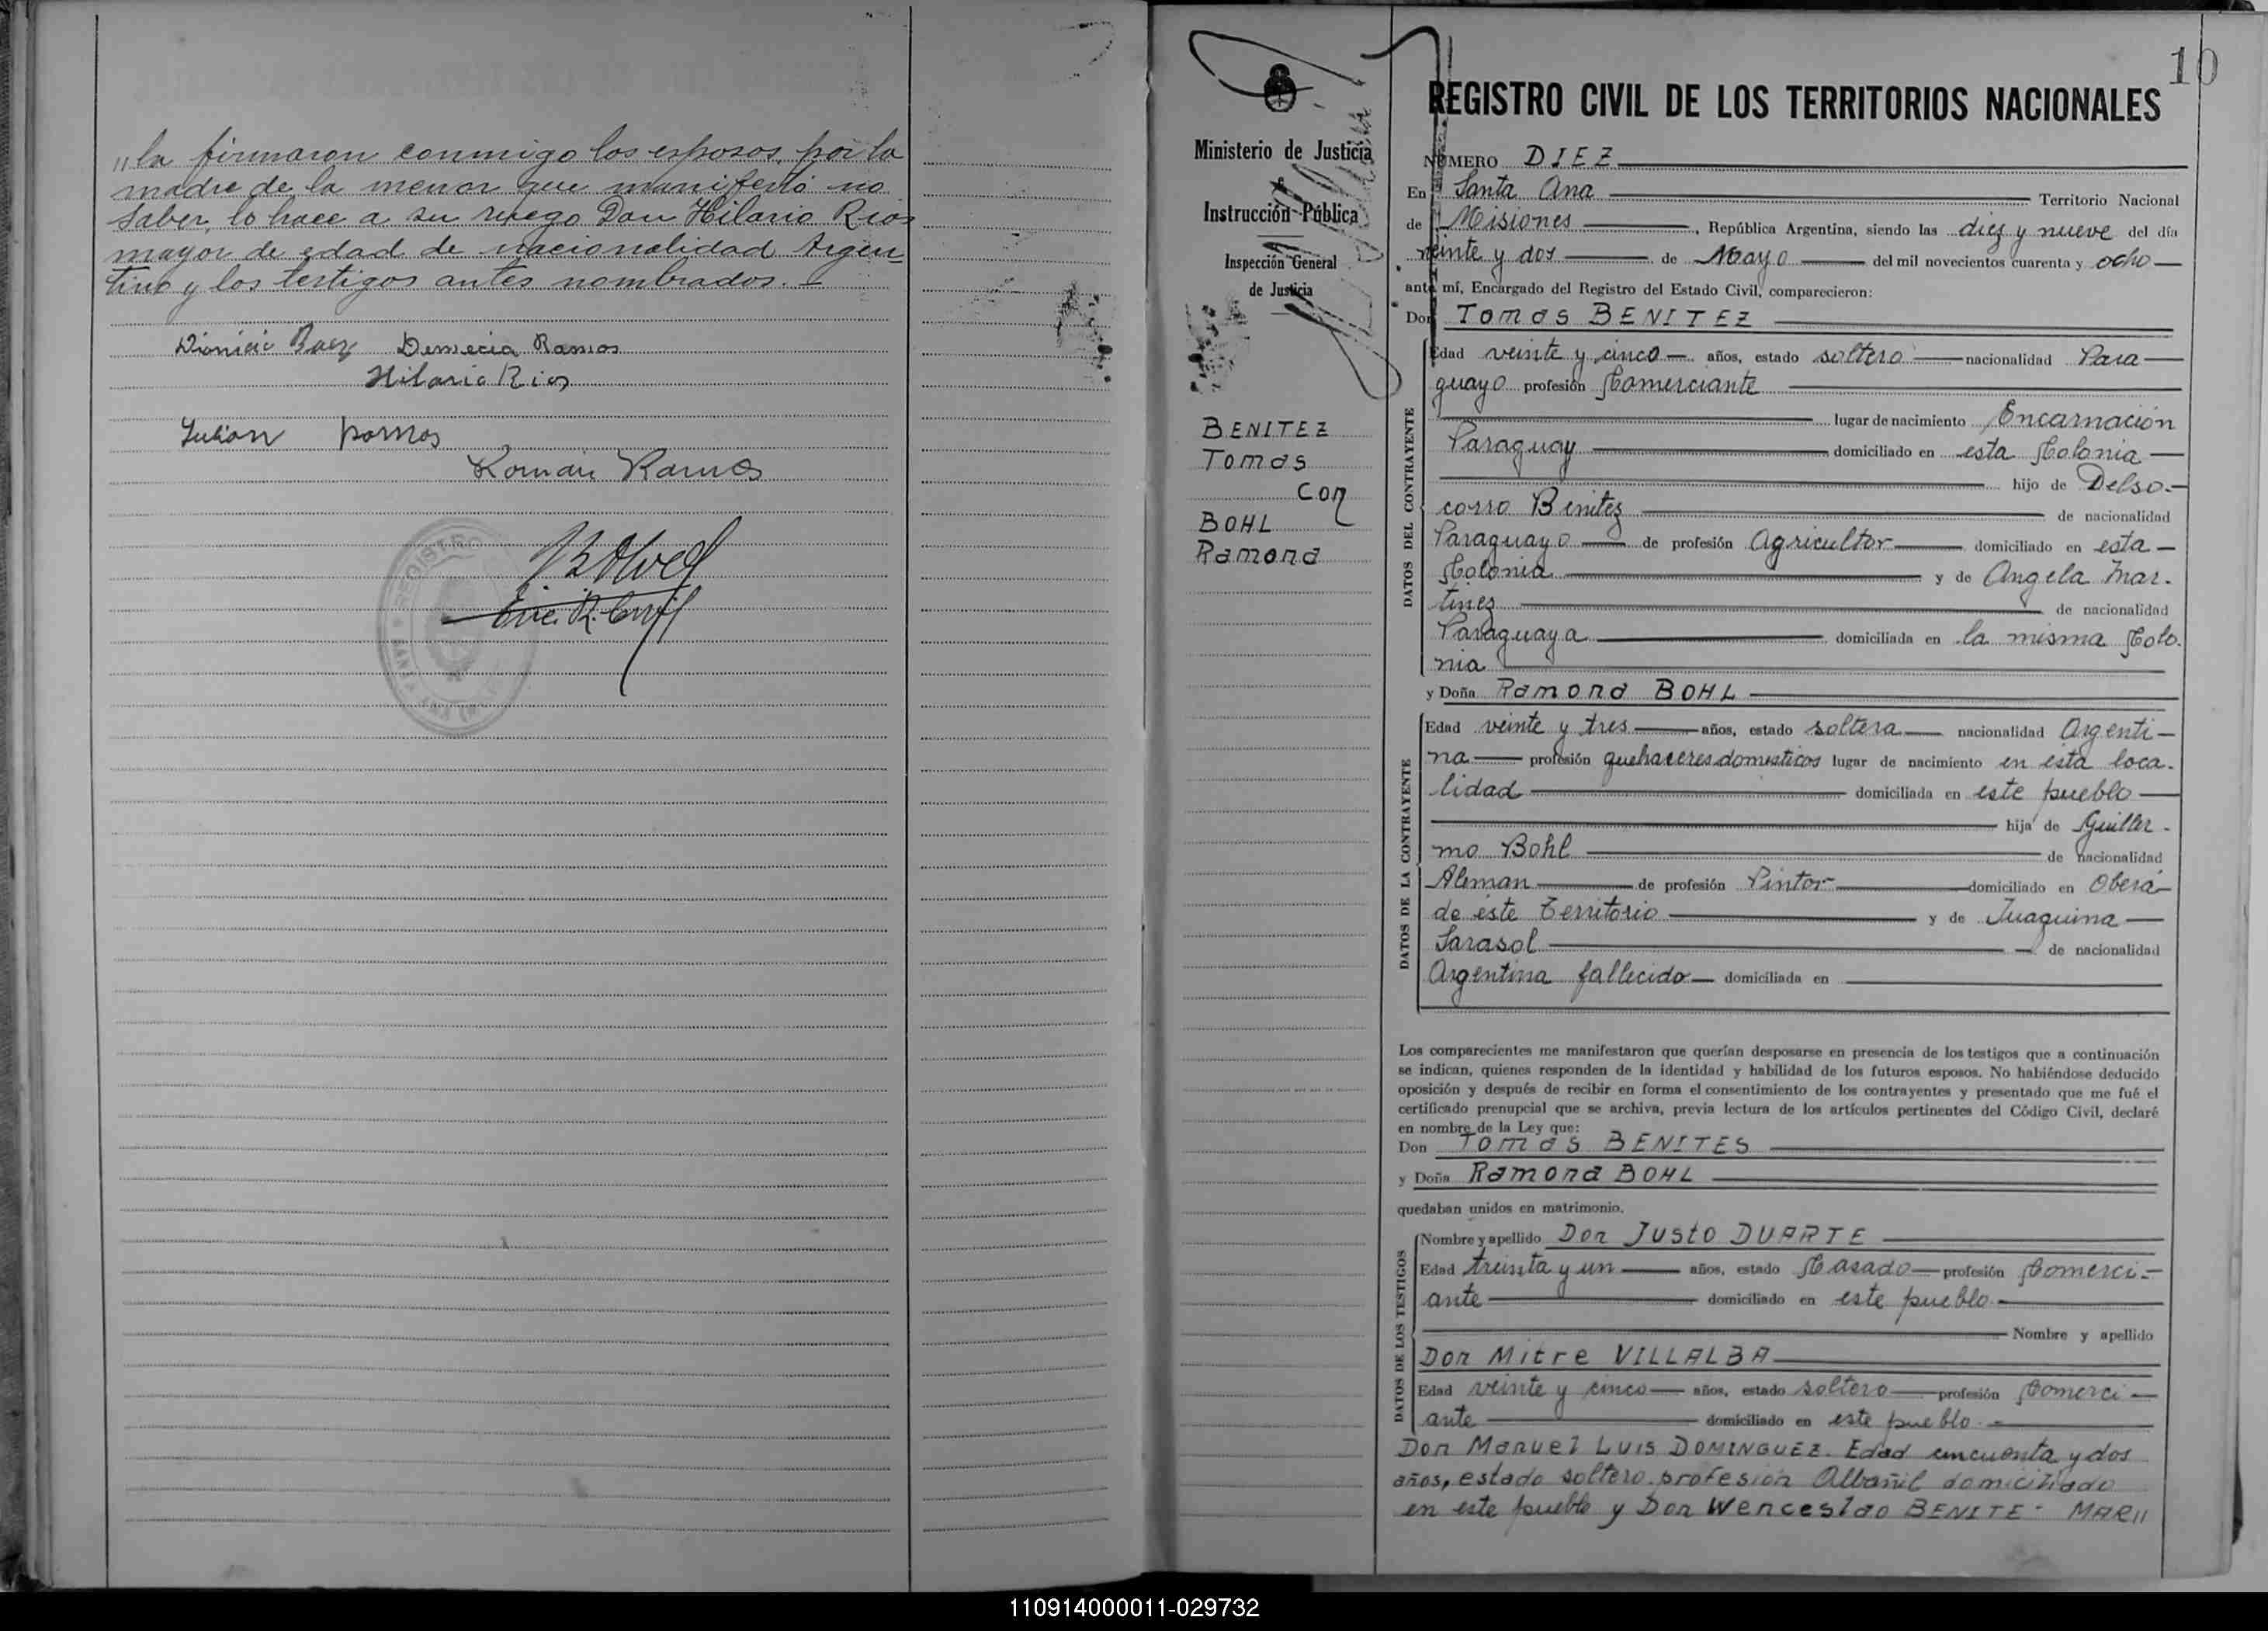 „la firmaron conmigo los esposos, por la
madre de la menor que manifestó no
saber, lo hace a su ruego Don Hilario Rios
mayor de edad de nacionalidad Argen-
tino y los testigos antes nombrados.
Dionicio Baez Demecia Ramos
Hilario Rios
Julian Ramos
Roman Ramos
Enc. R. Civil
REGISTRO
SANTA ANA
10
REGISTRO CIVIL DE LOS TERRITORIOS NACIONALES
Ministerio de Justicia
é
Instrucción Pública
Inspección General
de Justicia
BENITEZ
Tomas
con
BOHL
Ramona
NÚMERO DIEZ
En Santa Ana Territorio Nacional
de Misiones, República Argentina, siendo las diez y nueve del día
veinte y dos de Mayo del mil novecientos cuarenta y ocho
ante mí, Encargado del Registro del Estado Civil, comparecieron:
Don Tomas BENITEZ
DATOS DEL CONTRAYENTE
Edad veinte y cinco años, estado soltero nacionalidad Para
guayo profesión Comerciante
lugar de nacimiento Encarnación
Paraguay domiciliado en esta Colonia
hijo de Delso-
corro Benitez de nacionalidad
Paraguayo de profesión Agricultor domiciliado en esta
Colonia y de Angela Mar-
tinez de nacionalidad
Paraguaya domiciliada en la misma Colo-
nia
y Doña Ramona BOHL
DATOS DE LA CONTRAYENTE
Edad veinte y tres años, estado soltera nacionalidad Argenti-
na profesión quehaceres domesticos lugar de nacimiento en esta loca-
lidad domiciliada en este pueblo
hija de Guiller-
mo Bohl de nacionalidad
Aleman de profesión Pintor domiciliado en Oberá
de este Territorio y de Juaquina
Sarasol de nacionalidad
Argentina fallecido domiciliada en
Los comparecientes me manifestaron que querían desposarse en presencia de los testigos que a continuación
se indican, quienes responden de la identidad y habilidad de los futuros esposos. No habiéndose deducido
oposición y después de recibir en forma el consentimiento de los contrayentes y presentado que me fué el
certificado prenupcial que se archiva, previa lectura de los artículos pertinentes del Código Civil, declaré
en nombre de la Ley que:
Don Tomas BENITES
y Doña Ramona BOHL
quedaban unidos en matrimonio.
DATOS DE LOS TESTIGOS
Nombre y apellido Don Justo DUARTE
Edad treinta y un años, estado Casado profesión Comerci-
ante domiciliado en este pueblo
Nombre y apellido
Don Mitre VILLALBA
Edad veinte y cinco años, estado soltero profesión Comerci-
ante domiciliado en este pueblo
Don Manuel LUIS DOMINGUEZ. Edad cincuenta y dos
años, estado soltero profesión Albañil domiciliado
en este pueblo y Don Wenceslao BENITE- MAR„
110914000011-029732